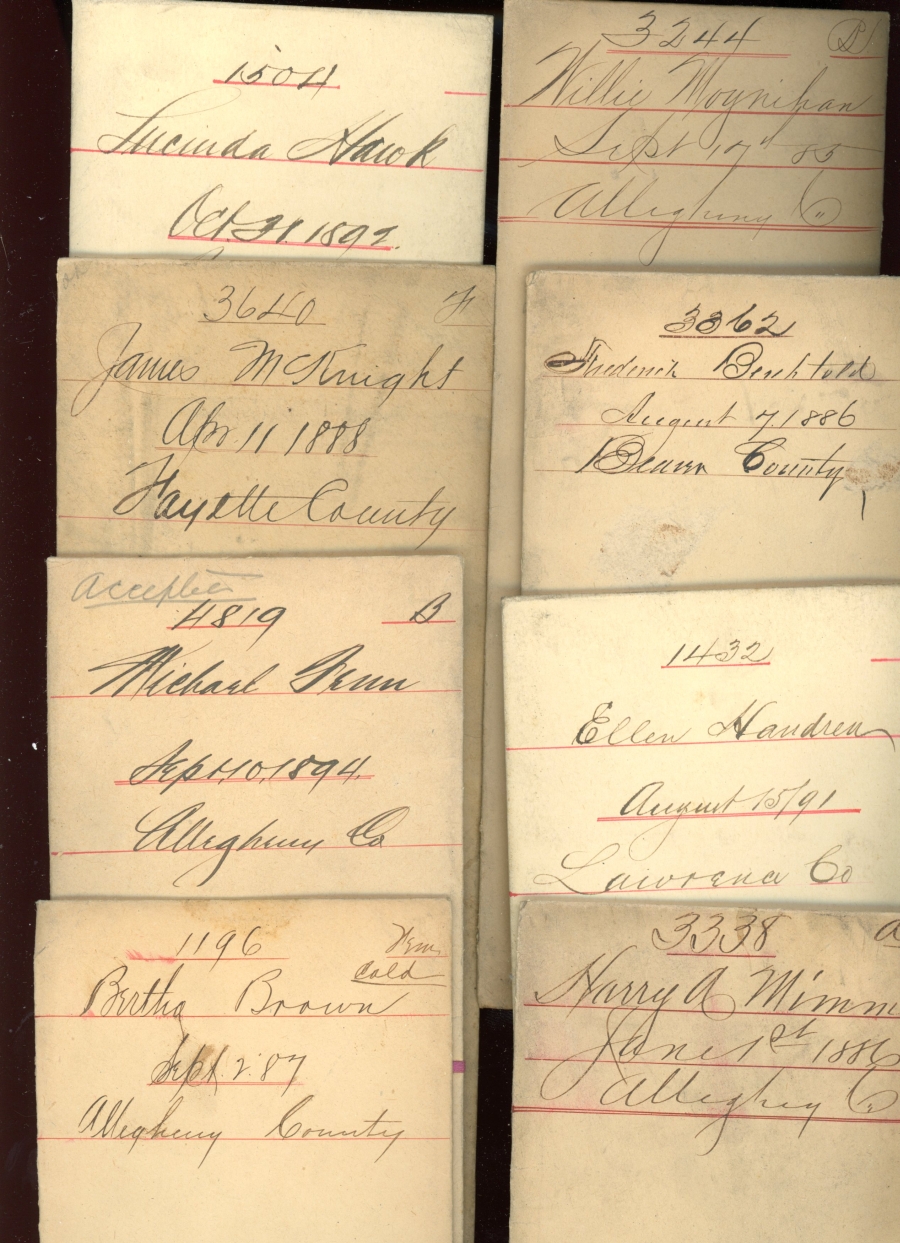 1504
Lucinda Hawk
Oct. 21. 1892.
3244 B
Willie Moynihan
Sept 17th 85
Allegheny Co
3640 F
James McKnight
Apr. 11 1888
Fayette County
3362
Frederick Bechtold
August 7. 1886
Beaver County
Accepted
4819 B
Michael
Sept. 10, 1894.
Allegheny Co
1432
Ellen Handren
August 15/91
Lawrence Co
1196 Fem
Cold
Bertha Brown
Sept. 2. 87
Allegheny County
3338 a
Harry A Mimm
June 1st 1886
Allegheny Co.